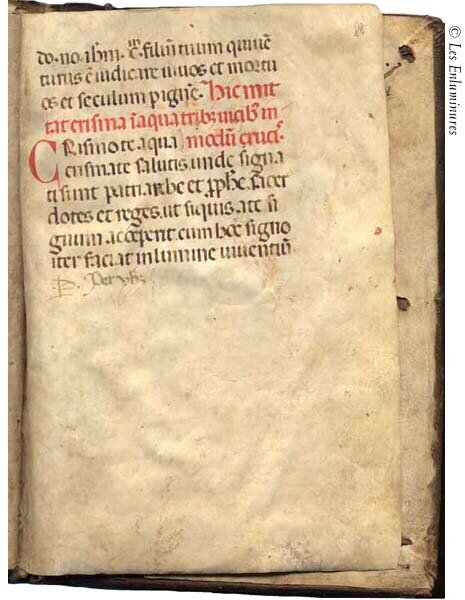 88
do. no. ihm. xpm. filiū tuum qui uē
turus ē iudicare uiuos et mortu
os et seculum p ignē. Hic mit
tat crisma ī aqua tribȝ uicibȝ in
CRismo te aqua modū crucis.
crismate salutis. unde signa
ti sunt patriarche et pphe. sacer
dotes et reges. ut siquis. a te si
gnum. acceperit. cum hoc signo
iter faciat in lumine uiuentiū
© Les Enluminures